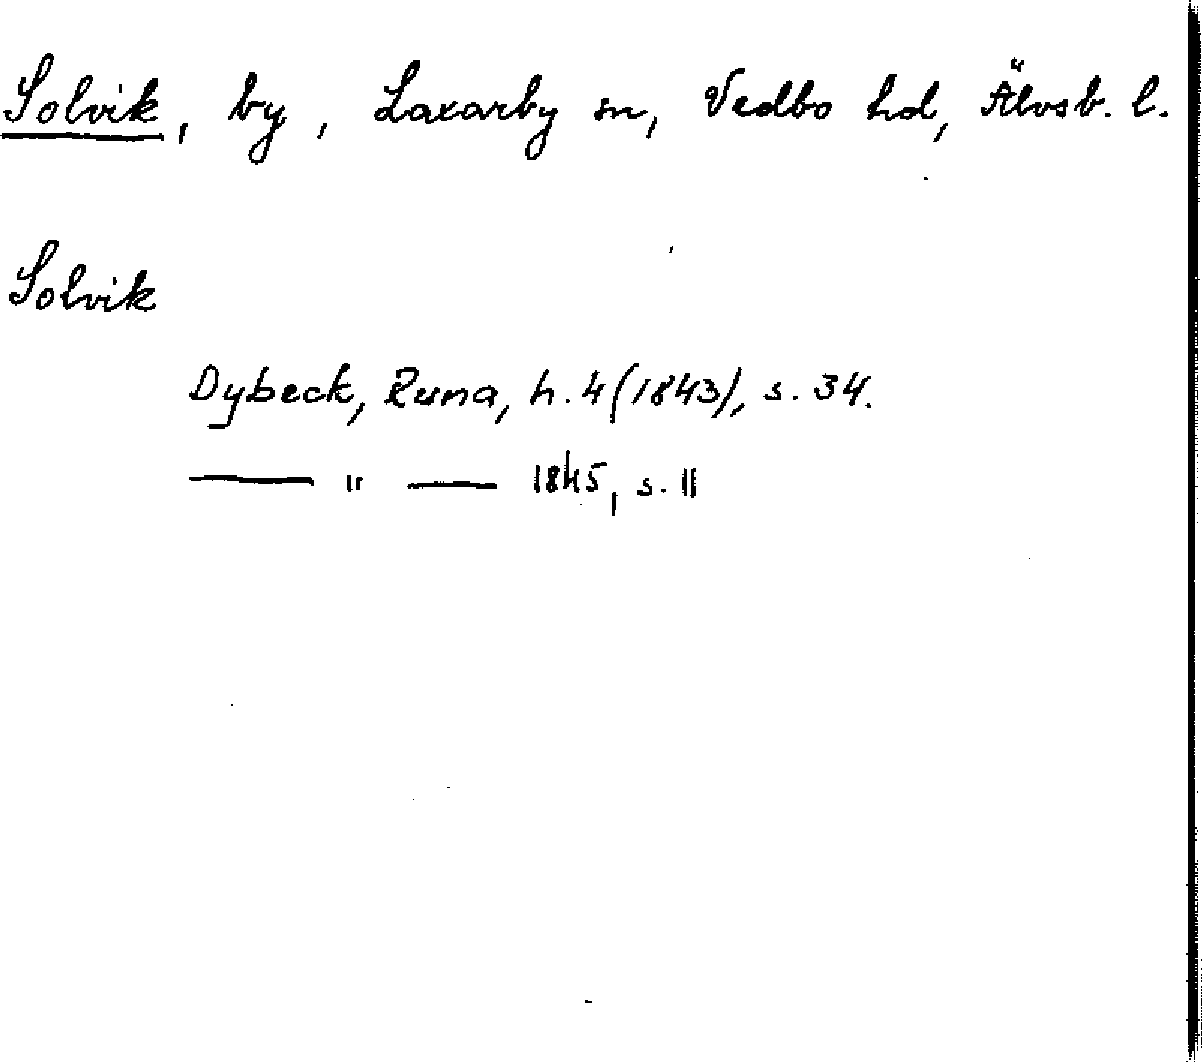 Solvik, by, Laxarby sn, Vedbo hd, Älvsb. l.
Solvik
Dybeck, Runa, h. 4 (1843), s. 34.
—— " —— 1845, s. 11